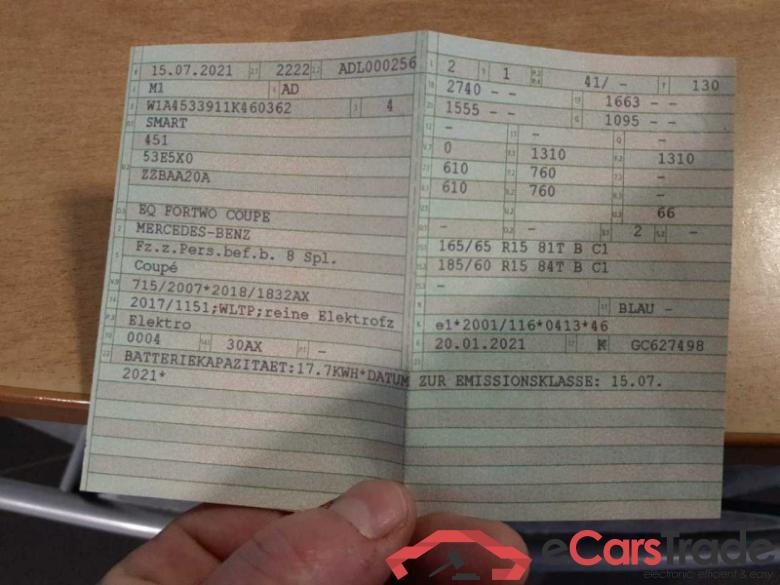 15.07.2021 2222 ADL000256
M1 AD
W1A4533911K460362 4
SMART
451
53E5X0
ZZBAA20A
EQ FORTWO COUPE
MERCEDES-BENZ
Fz.z.Pers.bef.b. 8 Spl.
Coupé
715/2007*2018/1832AX
2017/1151;WLTP;reine Elektrofz
Elektro
0004 30AX -
BATTERIEKAPAZITAET:17.7KWH*DATUM ZUR EMISSIONSKLASSE: 15.07.
2021*
2 1 41/ - 130
2740 - - 1663 - -
1555 - - 1095 - -
- - -
0 1310 1310
610 760 -
610 760 -
66
- - 2 -
165/65 R15 81T B C1
185/60 R15 84T B C1
-
BLAU -
e1*2001/116*0413*46
20.01.2021 K GC627498
eCarsTrade
electronic, efficient & easy